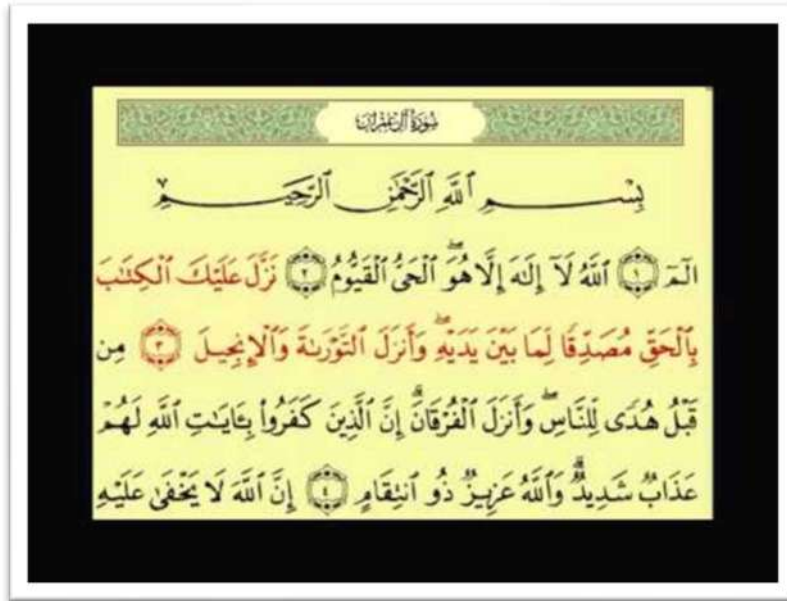 سُورَةُ آلِ عِمْرَان
بِسْمِ ٱللَّهِ ٱلرَّحْمَٰنِ ٱلرَّحِيمِ
الٓمٓ ١ ٱللَّهُ لَآ إِلَٰهَ إِلَّا هُوَ ٱلْحَىُّ ٱلْقَيُّومُ ٢ نَزَّلَ عَلَيْكَ ٱلْكِتَٰبَ
بِٱلْحَقِّ مُصَدِّقًا لِّمَا بَيْنَ يَدَيْهِ وَأَنزَلَ ٱلتَّوْرَىٰةَ وَٱلْإِنجِيلَ ٣ مِن
قَبْلُ هُدًى لِّلنَّاسِ وَأَنزَلَ ٱلْفُرْقَانَ ۗ إِنَّ ٱلَّذِينَ كَفَرُوا۟ بِـَٔايَٰتِ ٱللَّهِ لَهُمْ
عَذَابٌ شَدِيدٌ ۗ وَٱللَّهُ عَزِيزٌ ذُو ٱنتِقَامٍ ٤ إِنَّ ٱللَّهَ لَا يَخْفَىٰ عَلَيْهِ